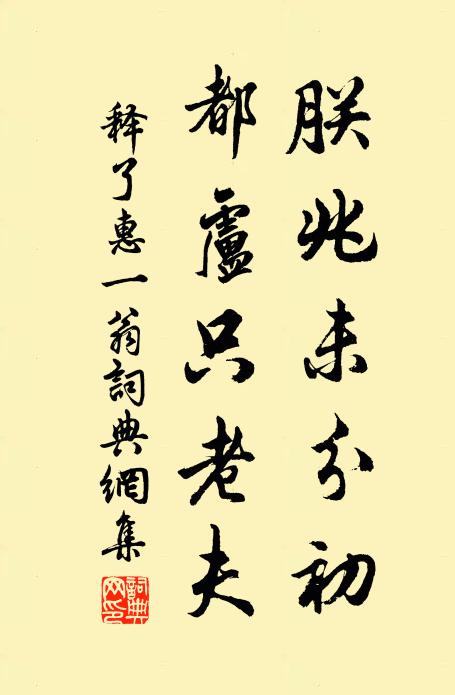 朕兆未分初
都盧只老夫
释了惠一翁詞典網集
詞典網印